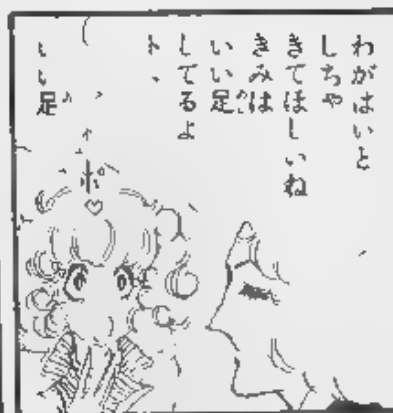 わがはいと
しちゃ
きてほしいね
きみは
いい足
してるよ
いい足
ポ